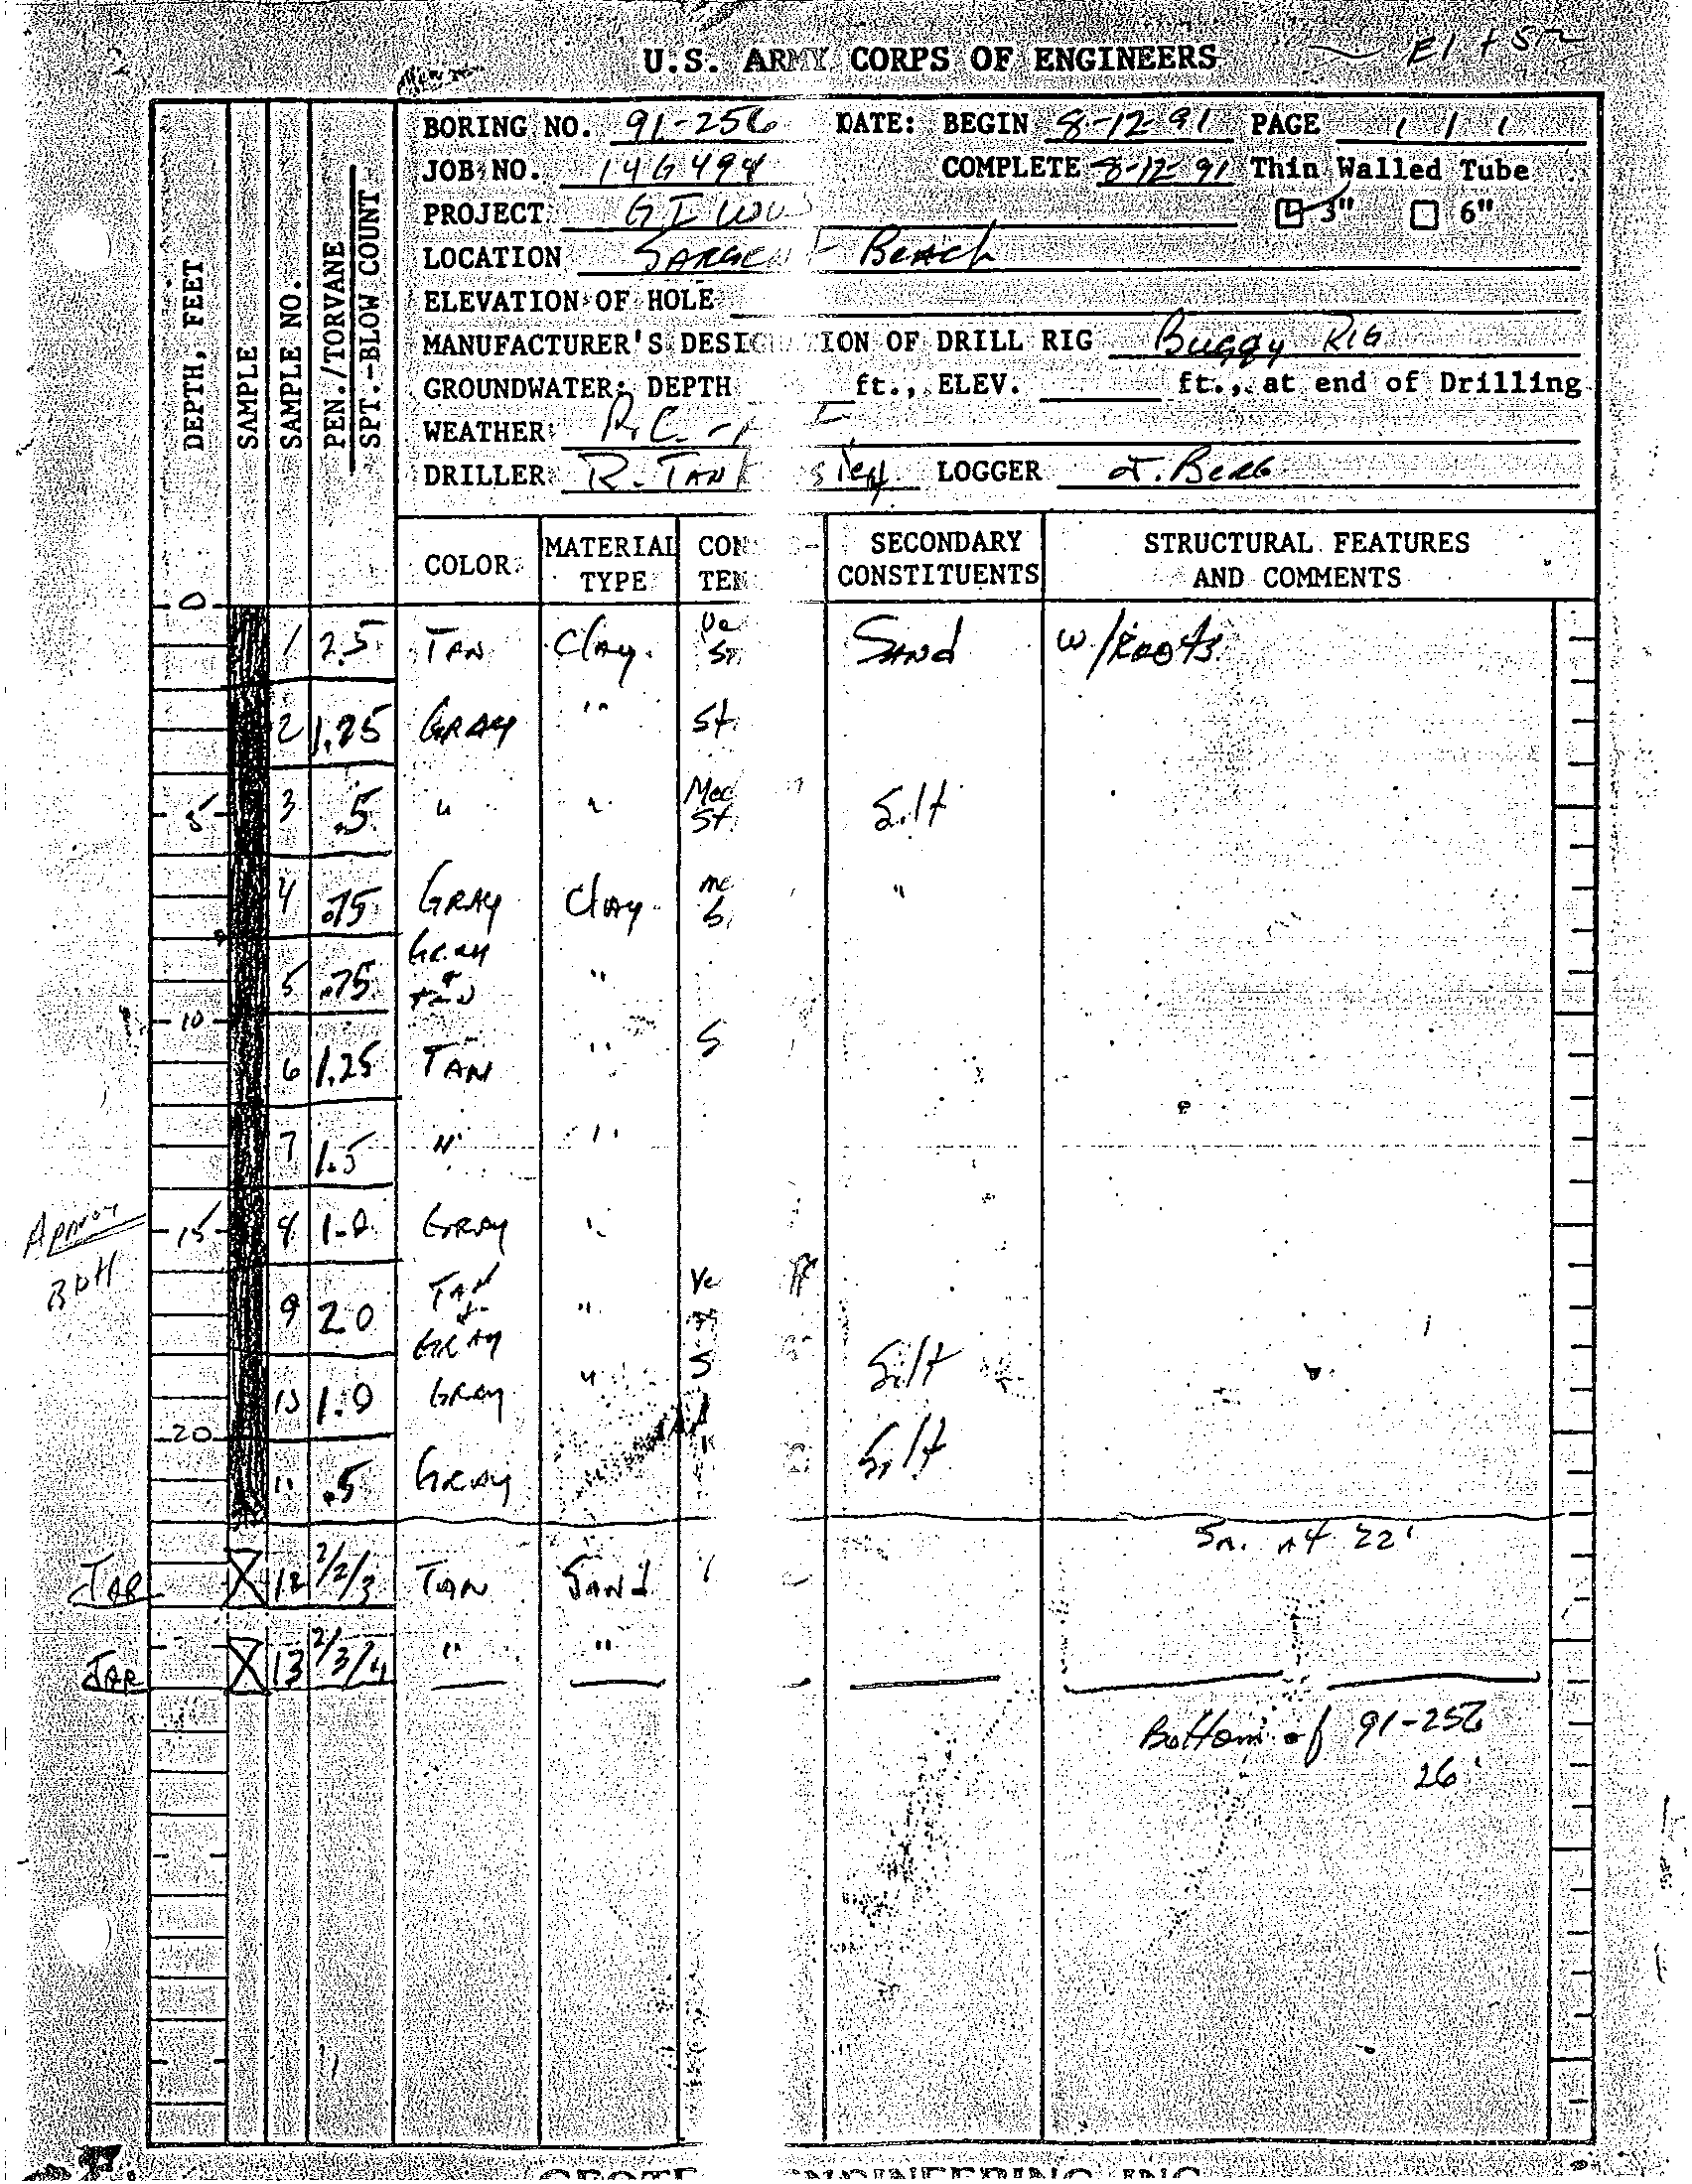 U.S. ARMY CORPS OF ENGINEERS
BORING NO. 91-256 DATE: BEGIN 8-12-91 PAGE 1 / 1
JOB NO. 14G494 COMPLETE 8-12-91 Thin Walled Tube
PROJECT: GIWW 3" 6"
LOCATION Beach
ELEVATION OF HOLE
MANUFACTURER'S DESIG ION OF DRILL RIG Buggy RIG
GROUNDWATER: DEPTH ft., ELEV. ft., at end of Drilling
WEATHER:
DRILLER: R. TAN LOGGER J. Berg
DEPTH, FEET
SAMPLE
SAMPLE NO.
PEN./TORVANE
SPT.-BLOW COUNT
COLOR MATERIAL TYPE CON TEN SECONDARY CONSTITUENTS STRUCTURAL FEATURES AND COMMENTS
0
1 2.5 TAN Clay Sand w/Roots
2 1.25 GRAY " St.
5 3 .5 " " Med St. Silt
4 .75 GRAY Clay "
5 .75 Gray & tan "
10
6 1.25 TAN " S
7 1.5 " "
15 8 1.0 GRAY "
9 2.0 TAN & GRAY " Ve
10 1.0 GRAY " S Silt
20
11 .5 GRAY Silt
Sa. at 22'
JAR 12 2/2/3 TAN SAND
JAR 13 2/3/4 " "
Bottom of 91-256
26'